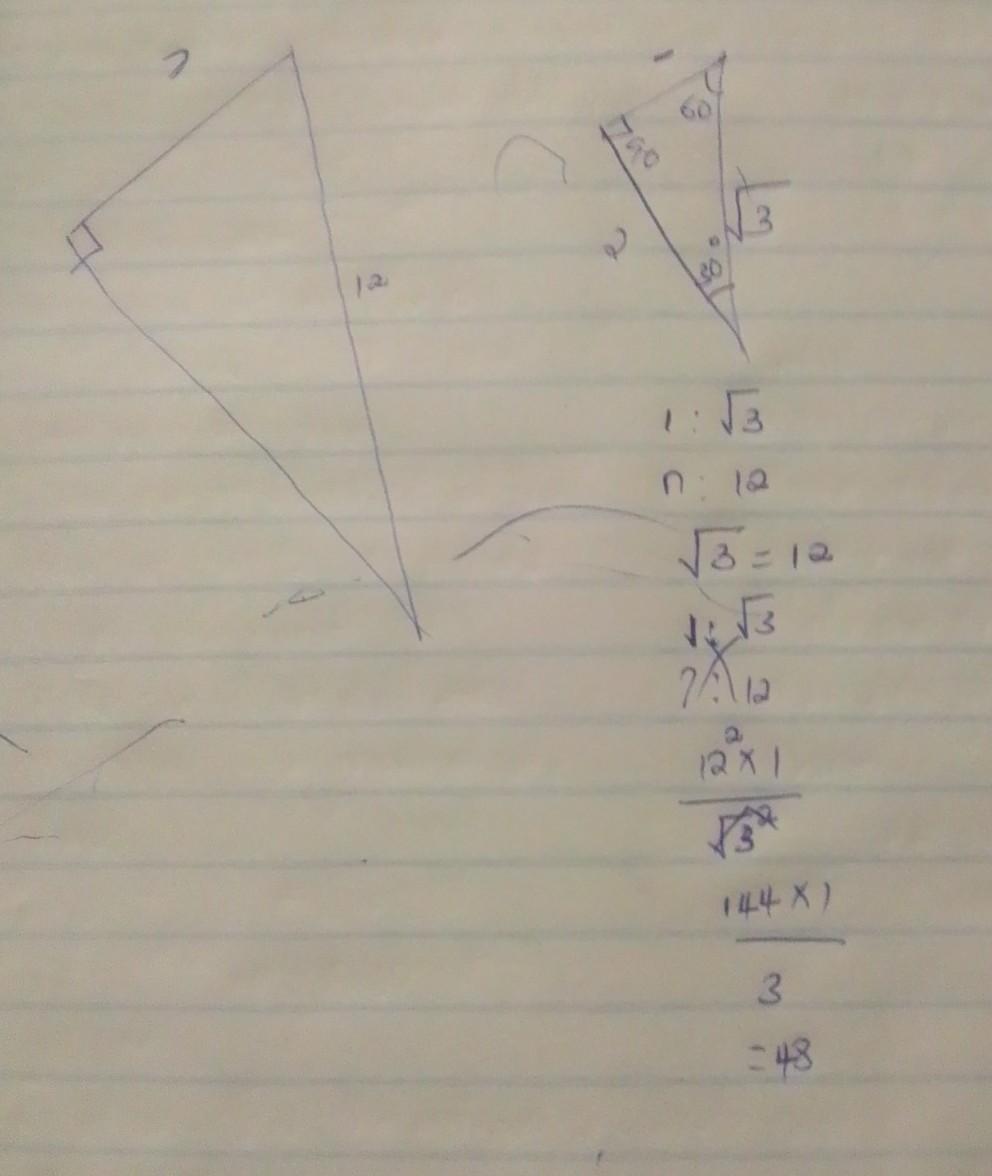 ?
12
60
90
√3
2
30°
1 : √3
n : 12
√3 = 12
1 : √3
? : 12
12² × 1
√3²
144 × 1
3
= 48